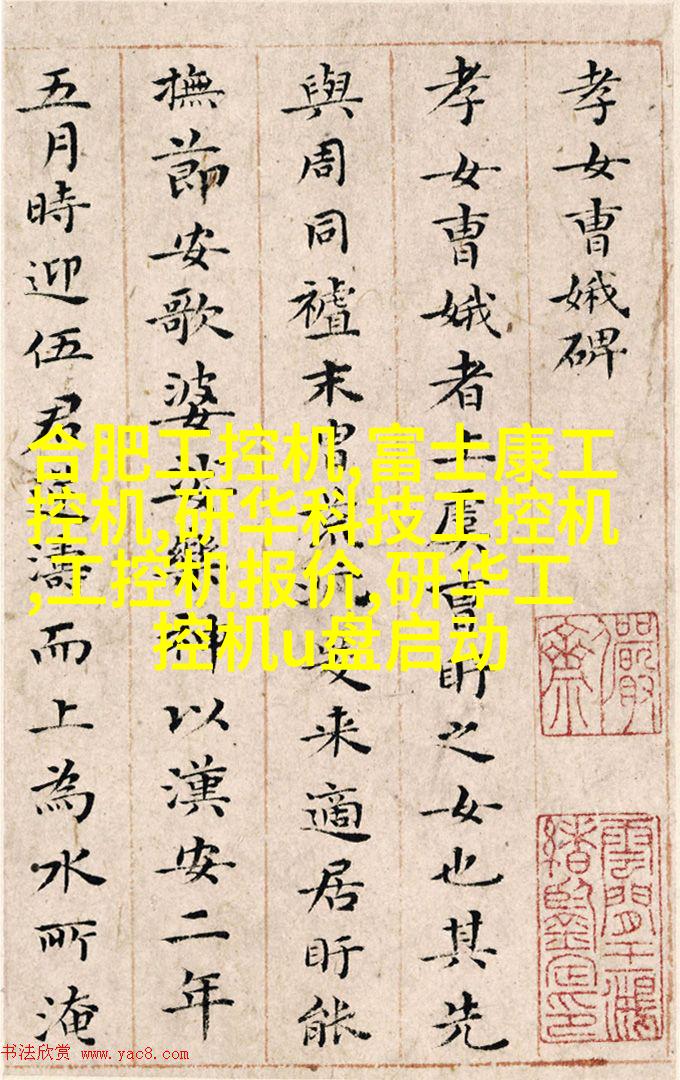 孝女曹娥碑
孝女曹娥者上虞曹盱之女也其先
與周同禮末胄荒爰来適居盱能
撫節安歌婆娑樂神以漢安二年
五月時迎伍君濤而上為水所淹
合肥工控机,富士康工
控机,研华科技工控机
,工控机报价,研华工
控机u盘启动
儼齋
雲間王鴻
緒鑒定印
书法欣赏 www.yac8.com